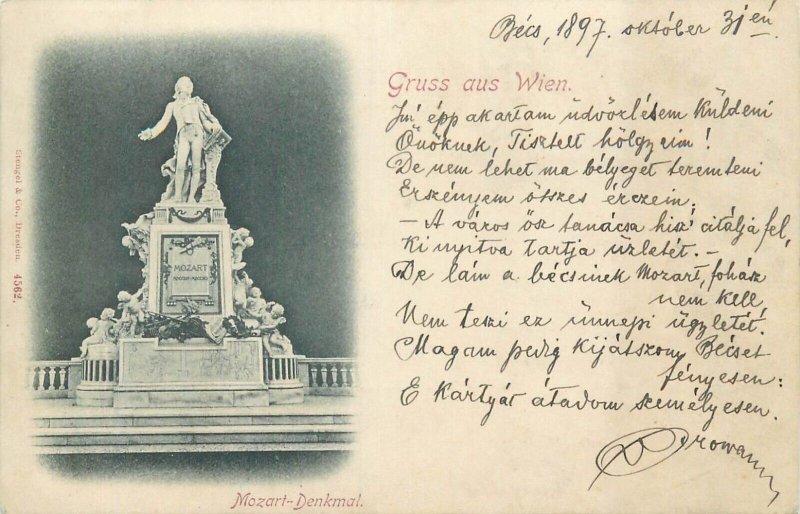 Bécs, 1897. október 31én.
Gruss aus Wien.
Im épp akartam üdvözlésem küldeni
Önöknek, Tisztelt hölgyeim!
De nem lehet ma bélyeget teremteni
Erszényem összes érczein.
– A város ősz tanácsa hisz citálja fel,
Ki nyitva tartja üzletét. –
De lám a bécsinek Mozart, fohász
nem kell,
Nem teszi ez ünnepi ügyletét.
Magam pedig kijátszom Bécset
fényesen:
E kártyát átadom személyesen.
MOZART
Stengel & Co., Dresden. 4562.
Mozart-Denkmal.